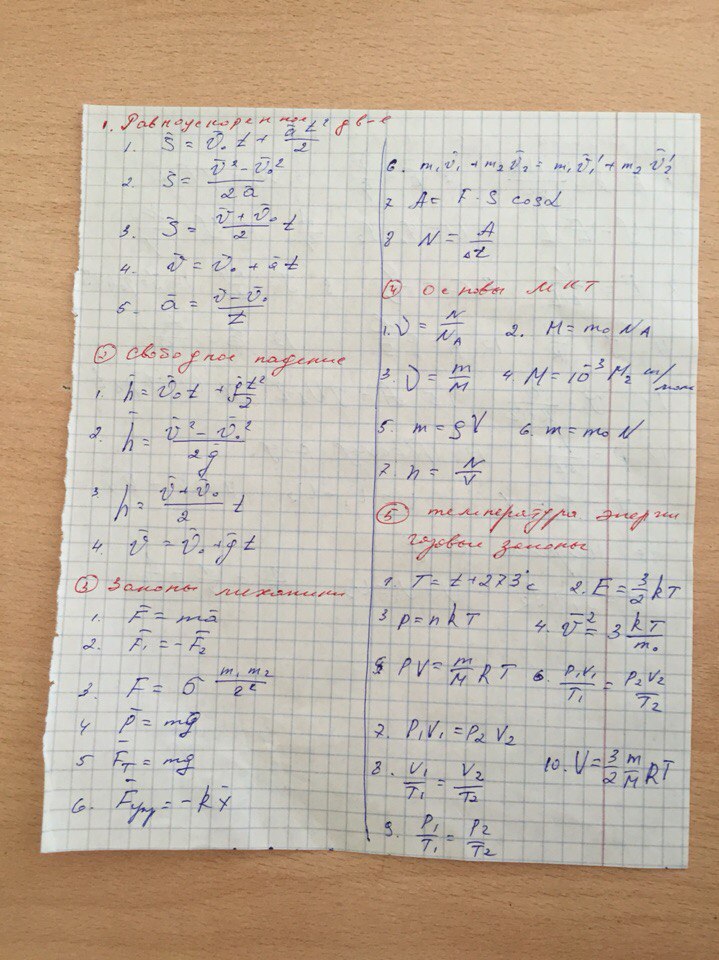 1. Равноускоренное дв-е
1. S̄ = v̄₀ t + āt²/2
2. S̄ = (v̄² − v̄₀²)/2ā
3. S̄ = (v̄ + v̄₀)/2 t
4. v̄ = v̄₀ + āt
5. ā = (v̄ − v̄₀)/t
② Свободное падение
1. h̄ = v̄₀t + ḡt²/2
2. h̄ = (v̄² − v̄₀²)/2ḡ
3. h̄ = (v̄ + v̄₀)/2 t
4. v̄ = v̄₀ + ḡt
③ Законы механики
1. F̄ = mā
2. F̄₁ = −F̄₂
3. F = G m₁m₂/r²
4 p̄ = mḡ
5 F̄т = mg
6. F̄упр = −kx̄
6. m₁v̄₁ + m₂v̄₂ = m₁v̄₁' + m₂v̄₂'
7. A = F·S cosα
8 N = A/Δt
④ Основы МКТ
1. ν = N/Nᴀ 2. M = m₀Nᴀ
3. ν = m/M 4. M = 10⁻³ Mr кг/моль
5. m = ρV 6. m = m₀N
7. n = N/V
⑤ температура. энергии
газовые законы
1. T = t + 273°c 2. E = 3/2 kT
3 p = nkT 4. v̄² = 3 kT/m₀
5. PV = m/M RT 6. P₁V₁/T₁ = P₂V₂/T₂
7. P₁V₁ = P₂V₂
8. V₁/T₁ = V₂/T₂ 10. U = 3/2 m/M RT
9. P₁/T₁ = P₂/T₂